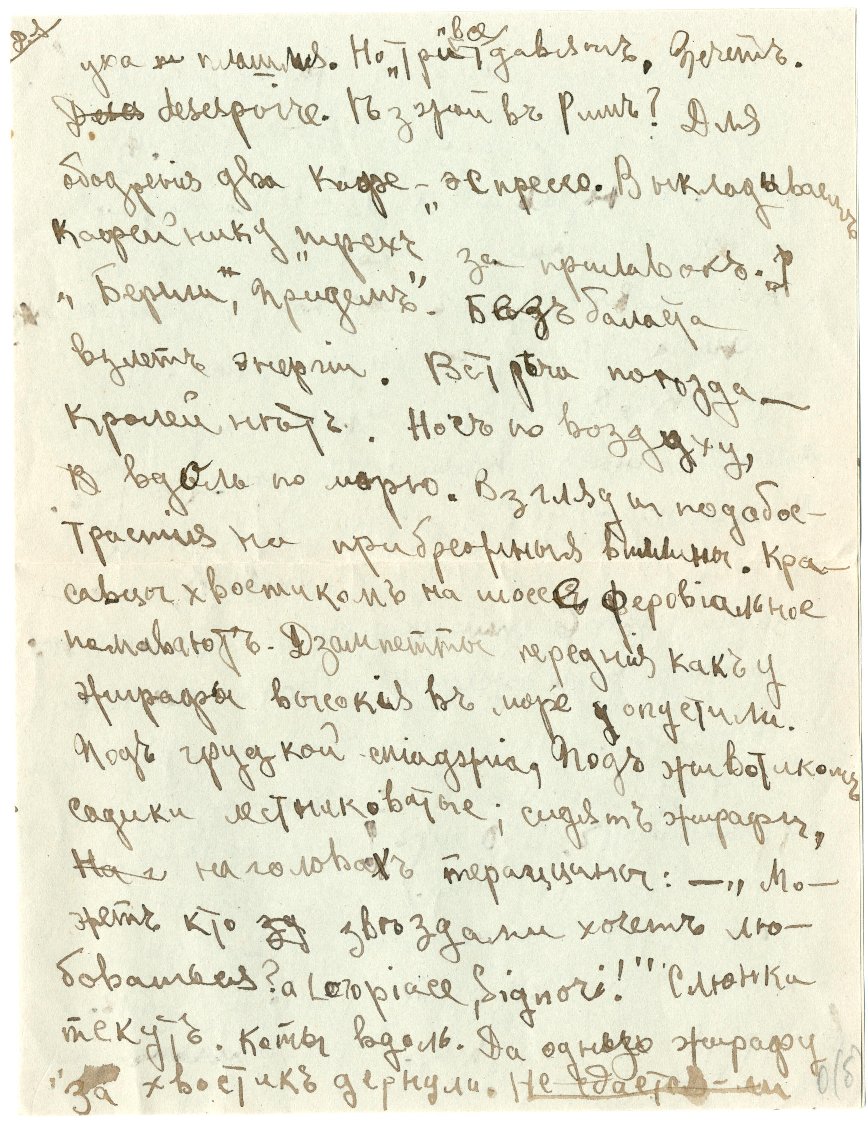 ука и плашмя. Но „три" все давятъ. Зечетъ.
désespoirе. Къ з въ Римъ? Для
ободренія два кафе-эспрессо. Выкладываемъ
кафейнику „трехъ" за прилавокъ. „Р
„Берлин", „придемъ". Безъ баласта
взлетъ энергіи. Встрѣча поѣзда —
кролей нѣтъ. Ночь по воздуху,
В вдоль по морю. Взгляды подобос-
трастія на прибрежныя виллины. Кра-
савцы хвостикомъ на шоссе феровіальное
помаваютъ. Дзампетты переднія какъ у
жирафы высокія въ море опустили.
Подъ грудкой спіаджіа, Подъ животикомъ
садики лестниковатые; сидятъ жирафы,
На г на головахъ терраццины: — „Мо-
жетъ кто зв звѣздами хочетъ лю-
боваться? a loro piace, Signori!" Слюнки
текутъ. Коты вдоль. Да одную жирафу
за хвостикъ дернули. Не сдается-ли